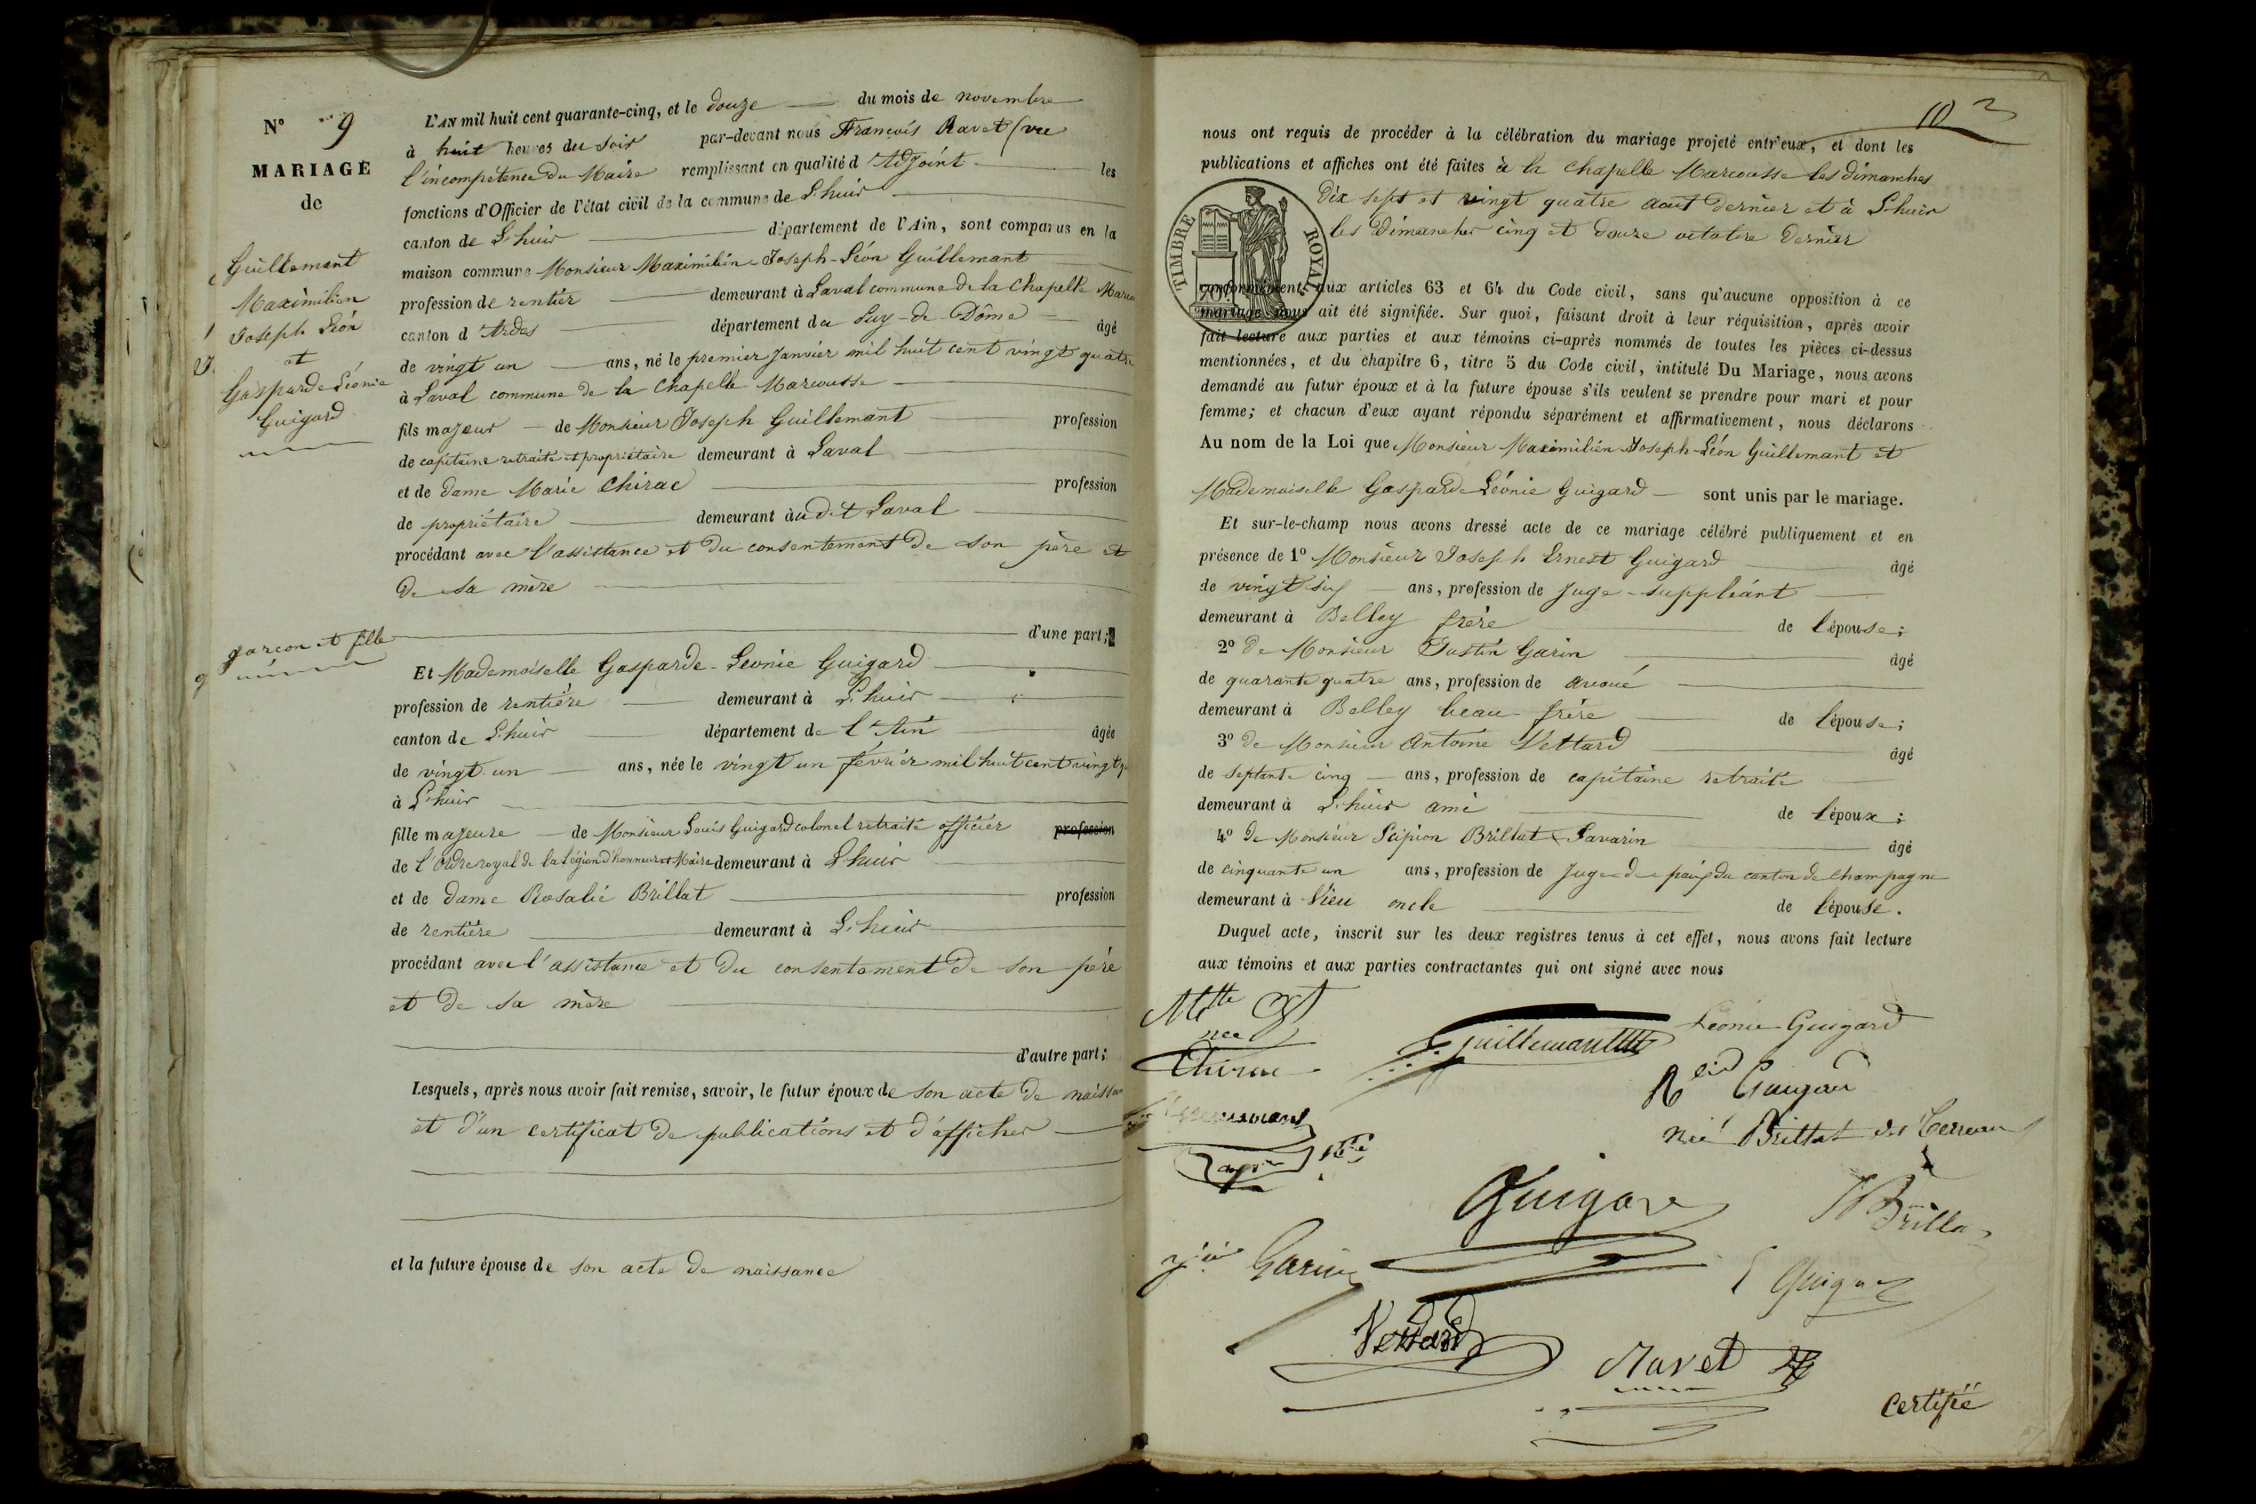 N° 9
MARIAGE
de
Guillemant
Maximilien
Joseph Léon
et
Gasparde Léonie
Guigard
garçon et fille
L'AN mil huit cent quarante-cinq, et le douze du mois de novembre
à huit heures du soir par-devant nous François Ravet (vu
l'incompétence du Maire remplissant en qualité d'Adjoint les
fonctions d'Officier de l'état civil de la commune de Lhuis
canton de Lhuis département de l'Ain, sont comparus en la
maison commune Monsieur Maximilien-Joseph-Léon Guillemant
profession de rentier demeurant à Laval commune de la Chapelle
canton d'Ardes département du Puy-de-Dôme âgé
de vingt un ans, né le premier Janvier mil huit cent vingt quatre
à Laval commune de la Chapelle Marcousse
fils majeur de Monsieur Joseph Guillemant profession
de capitaine retraité et propriétaire demeurant à Laval
et de dame Marie Chirac profession
de propriétaire demeurant àudit Laval
procédant avec l'assistance et du consentement de son père et
de sa mère
d'une part;
Et Mademoiselle Gasparde-Léonie Guigard
profession de rentière demeurant à Lhuis
canton de Lhuis département de l'Ain âgée
de vingt un ans, née le vingt un février mil huit cent vingt
à Lhuis
fille majeure de Monsieur Louis Guigard colonel retraité officier profession
de l'Ordre royal de la légion d'honneur et Maire demeurant à Lhuis
et de dame Rosalie Brillat profession
de rentière demeurant à Lhuis
procédant avec l'assistance et du consentement de son père
et de sa mère
d'autre part;
Lesquels, après nous avoir fait remise, savoir, le futur époux de son acte de
et d'un certificat de publications et d'affiches
et la future épouse de son acte de naissance
nous ont requis de procéder à la célébration du mariage projeté entr'eux, et dont les
publications et affiches ont été faites à la Chapelle Marcousse les dimanches
dix sept et vingt quatre aout dernier et à Lhuis
les dimanches cinq et douze octobre dernier
TIMBRE ROYAL
70
conformément aux articles 63 et 64 du Code civil, sans qu'aucune opposition à ce
mariage nous ait été signifiée. Sur quoi, faisant droit à leur réquisition, après avoir
fait lecture aux parties et aux témoins ci-après nommés de toutes les pièces ci-dessus
mentionnées, et du chapitre 6, titre 5 du Code civil, intitulé Du Mariage, nous avons
demandé au futur époux et à la future épouse s'ils veulent se prendre pour mari et pour
femme; et chacun d'eux ayant répondu séparément et affirmativement, nous déclarons
Au nom de la Loi que Monsieur Maximilien-Joseph-Léon Guillemant et
Mademoiselle Gasparde-Léonie Guigard sont unis par le mariage.
Et sur-le-champ nous avons dressé acte de ce mariage célébré publiquement et en
présence de 1° Monsieur Joseph Ernest Guigard âgé
de vingt six ans, profession de Juge-suppléant
demeurant à Belley frère de l'épouse;
2° de Monsieur Justin Garin âgé
de quarante quatre ans, profession de avoué
demeurant à Belley beau-frère de l'épouse;
3° de Monsieur Antoine Vettard âgé
de septante cinq ans, profession de capitaine retraité
demeurant à Lhuis ami de l'époux;
4° de Monsieur Scipion Brillat Savarin âgé
de cinquante un ans, profession de Juge de paix du canton de Champagne
demeurant à Vieu oncle de l'épouse.
Duquel acte, inscrit sur les deux registres tenus à cet effet, nous avons fait lecture
aux témoins et aux parties contractantes qui ont signé avec nous
née
Chirac
Guillemant
Léonie Guigard
Guigard
née Brillat
Guigard
Garin
Vettard
Ravet
Certifié